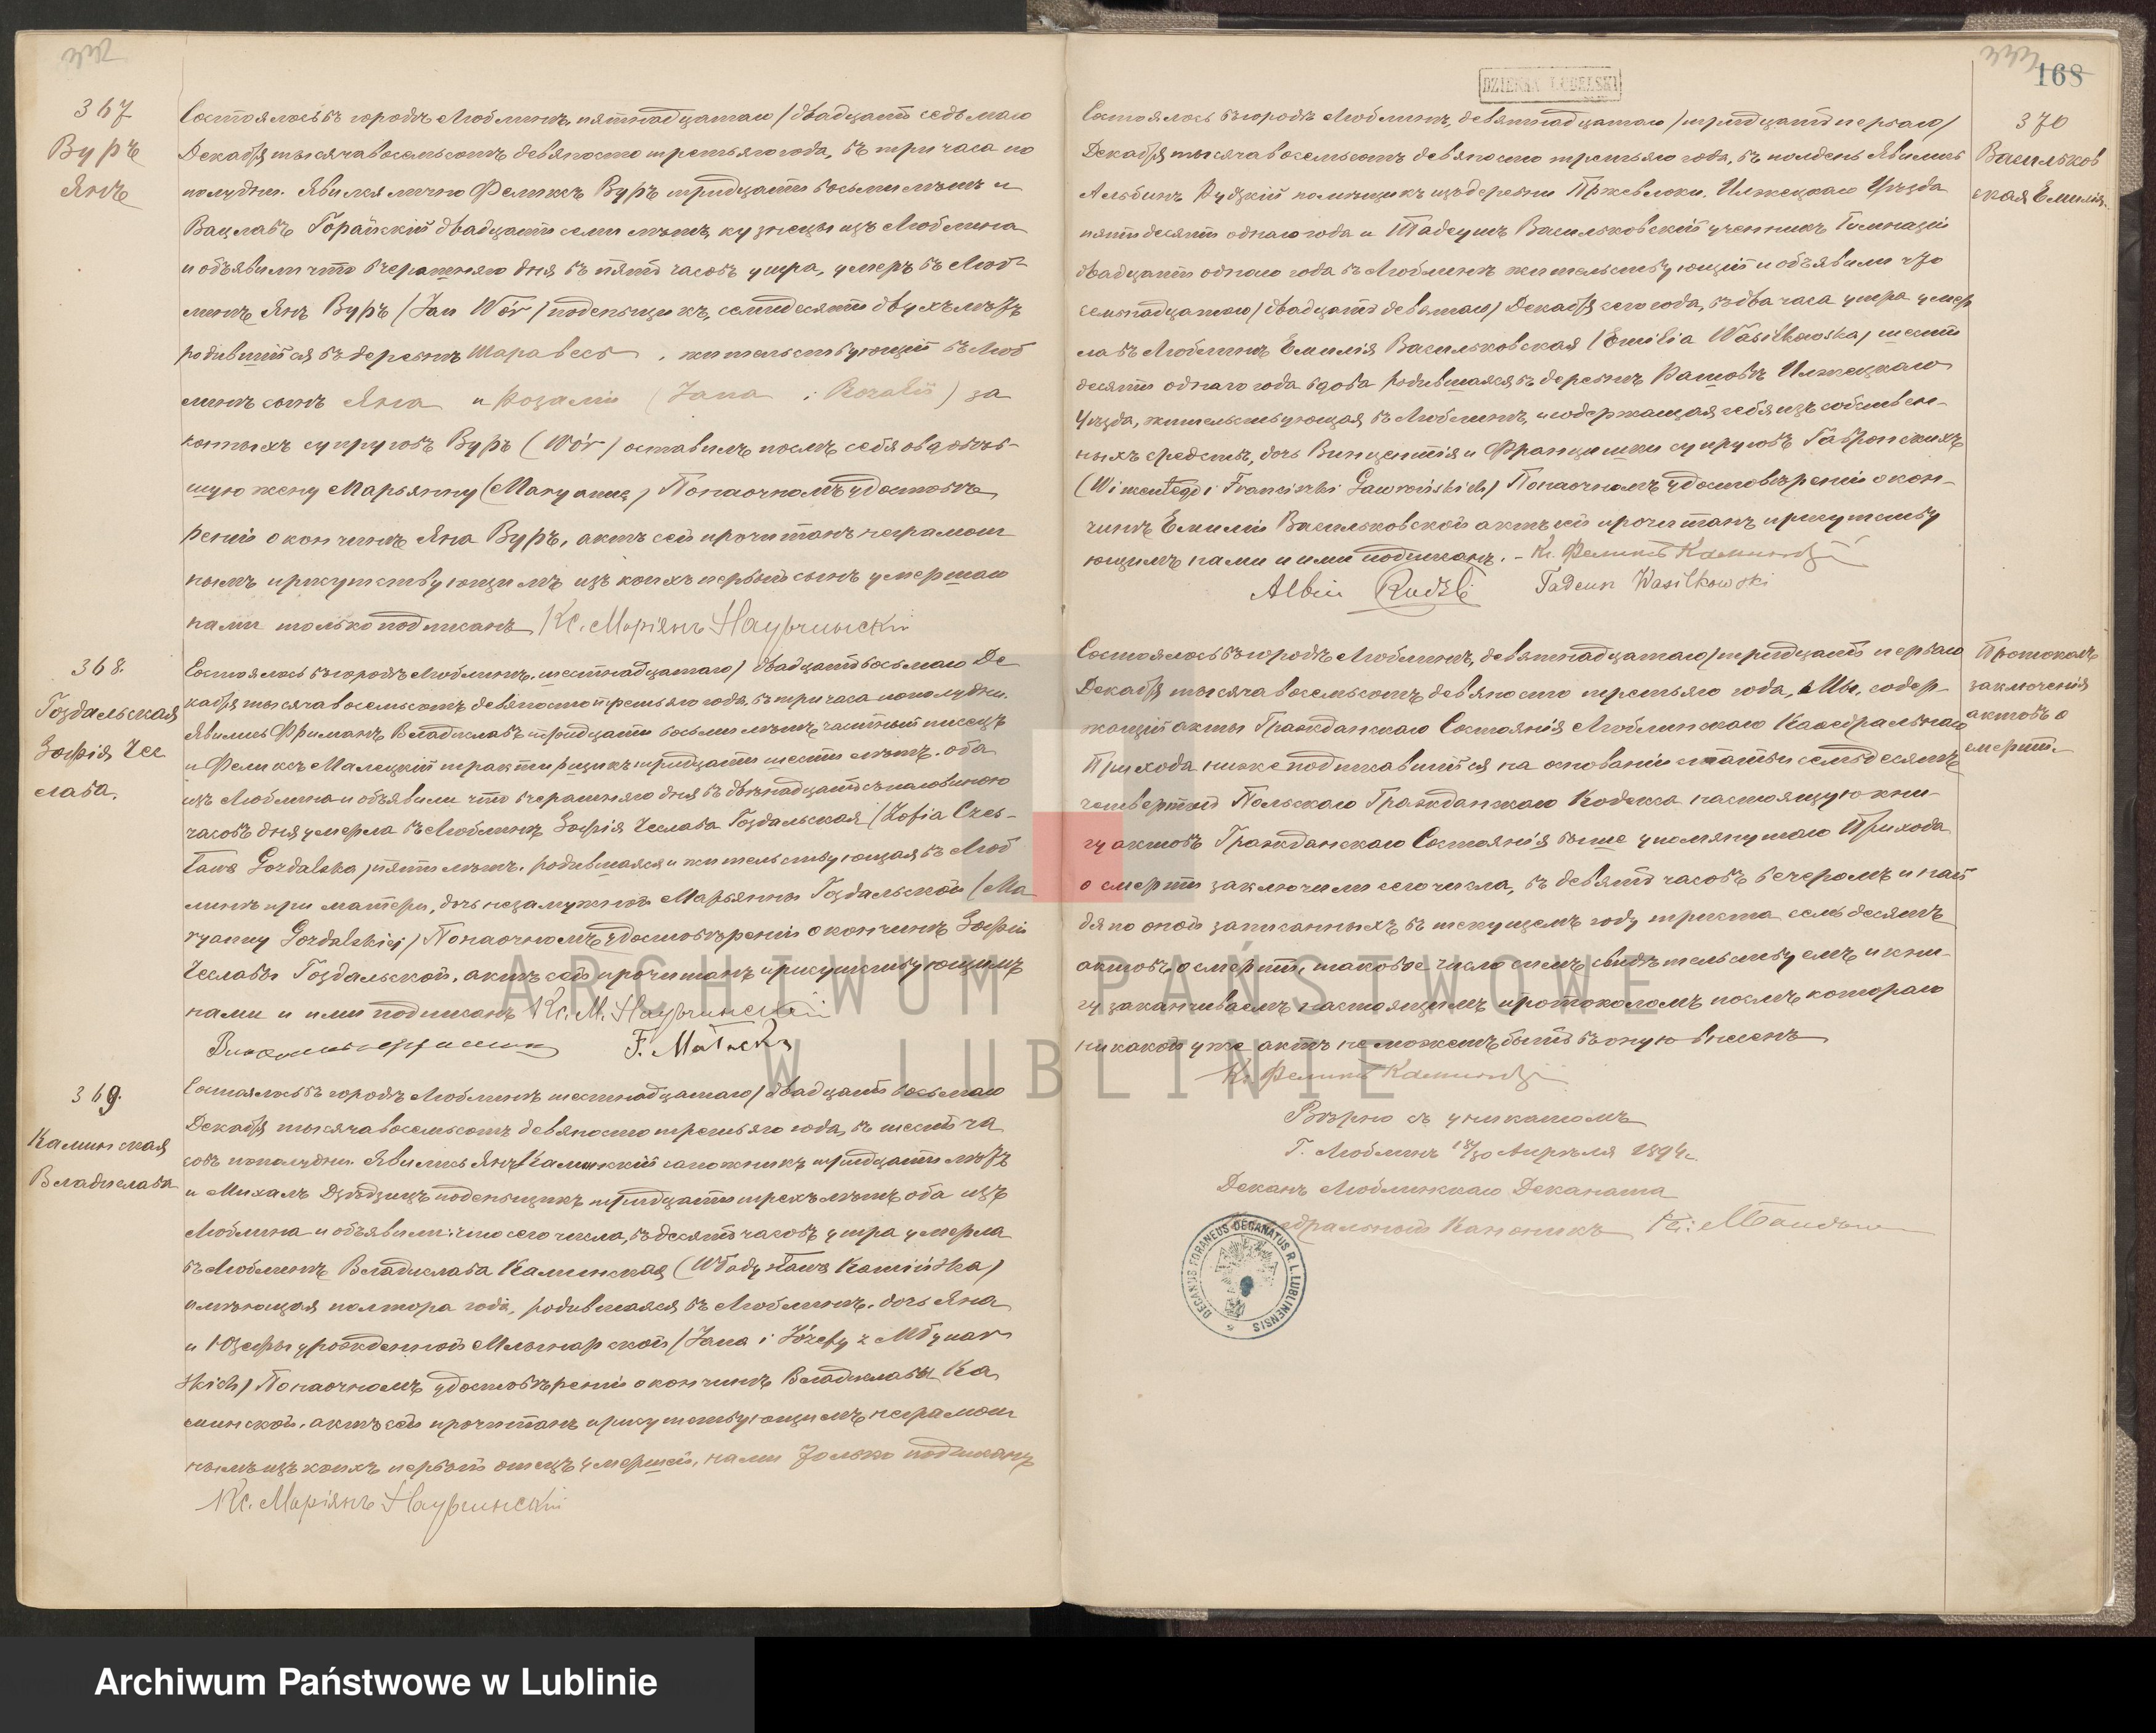 367
Вуръ
Янъ
Состоялось въ городѣ Люблинѣ, пятнадцатаго /двадцать седьмаго
Декабря тысяча восемьсотъ девяносто третьяго года, въ три часа по
полудни. Явился лично Феликсъ Вуръ тридцати восьми лѣтъ и
Вацлавъ Горайскій двадцати семи лѣтъ, кузнецы изъ Люблина
и объявили что вчерашняго дня въ пять часовъ утра, умеръ въ Люб-
линѣ Янъ Вуръ /Jan Wór/ поденьщикъ, семидесяти двухъ лѣтъ
родившійся въ деревнѣ, жительствующій въ Люб
линѣ сынъ Яна и Розаліи (Jana i Rozalii) за
конныхъ супруговъ Вуръ (Wór) оставивъ послѣ себя овдовѣв-
шую жену Марьянну (Maryannę) По наочномъ удостовѣ
реніи о кончинѣ Яна Вуръ, актъ сей прочитанъ неграмот
нымъ присутствующимъ изъ коихъ первый сынъ умершаго
нами только подписанъ Кс. Маріянъ
368.
Гоздальская
Зофія Чес
лава.
Состоялось въ городѣ Люблинѣ, шестнадцатаго /двадцать восьмаго Де
кабря тысяча восемьсотъ девяносто третьяго года, въ три часа пополудни.
Явились Фриманъ Владиславъ тридцати восьми лѣтъ, частный писецъ
и Феликсъ Малецкій трактирщикъ тридцати шести лѣтъ, оба
изъ Люблина и объявили что вчерашняго дня въ двѣнадцать съ половиною
часовъ дня умерла въ Люблинѣ Зофія Чеслава Гоздальская /Zofia Czes-
ława Gozdalska/ пяти лѣтъ, родившаяся и жительствующая въ Люб
линѣ при матери, дочь незамужней Марьянны Гоздальской /Ma
ryanny Gozdalskiej/ По наочномъ удостовѣреніи о кончинѣ Зофіи
Чеславы Гоздальской, актъ сей прочитанъ присутствующимъ
нами и ими подписанъ Кс. М.
F. Małecki
369.
Каминская
Владислава
Состоялось въ городѣ Люблинѣ шестнадцатаго /двадцать восьмаго
Декабря тысяча восемьсотъ девяносто третьяго года, въ шесть ча
совъ пополудни. Явились Янъ Каминскій сапожникъ тридцати лѣтъ
и Михалъ поденьщикъ тридцати трехъ лѣтъ, оба изъ
Люблина и объявили: что сего числа, въ десять часовъ утра умерла
въ Люблинѣ Владислава Каминская (Władysława Kamińska)
имѣющая полтора года, родившаяся въ Люблинѣ, дочь Яна
и Юзефы урожденной Млынарской /Jana i Józefy z Młynar
skich/ По наочномъ удостовѣреніи о кончинѣ Владиславы Ка
минской, актъ сей прочитанъ присутствующимъ неграмот
нымъ изъ коихъ первый отецъ умершей, нами только подписанъ
Кс. Маріянъ
168
DZIEKAN LUBELSKI
370
Васильков
ская Емилія.
Состоялось въ городѣ Люблинѣ, девятнадцатаго /тридцать перваго/
Декабря тысяча восемьсотъ девяносто третьяго года, въ полдень Явились
Альбинъ Рудзкій помѣщикъ изъ деревни Пржевлоки, Илжецкаго Уѣзда
пятидесяти однаго года и Тадеушъ Васильковскій ученникъ Гимназіи
двадцати однаго года въ Люблинѣ жительствующій и объявили что
семнадцатаго /двадцать девятаго/ Декабря сего года, въ два часа утра умер
ла въ Люблинѣ Емилія Васильковская /Emilia Wasilkowska/ шести
десяти однаго года вдова родившаяся въ деревнѣ Илжецкаго
Уѣзда, жительствующая въ Люблинѣ, и содержащая себя изъ собствен-
ныхъ средствъ, дочь Винцентія и Францишки супруговъ Гавронскихъ
(Wincentego i Franciszki Gawrońskich) По наочномъ удостовѣреніи о кон-
чинѣ Емиліи Васильковской актъ сей прочитанъ присутству
ющимъ нами и ими подписанъ. - Кс. Феликсъ
Albin Rudzki Tadeusz Wasilkowski
Протоколъ
заключенія
актовъ о
смерти.
Состоялось въ городѣ Люблинѣ, девятнадцатаго /тридцать перваго
Декабря тысяча восемьсотъ девяносто третьяго года, Мы, содер-
жащій акты Гражданскаго Состоянія Люблинскаго Каѳедральнаго
Прихода нижеподписавшійся на основаніи статьи семьдесятъ
четвертой Польскаго Гражданскаго Кодекса настоящую кни-
гу актовъ Гражданскаго Состоянія выше упомянутаго Прихода
о смерти заключили сего числа, въ девять часовъ вечеромъ и най
дя по оной записанныхъ въ текущемъ году триста семьдесятъ
актовъ о смерти, таковое число симъ свидѣтельствуемъ и кни-
гу заканчиваемъ настоящимъ протоколомъ послѣ котораго
никакой уже актъ не можетъ быть въ оную внесенъ
Кс. Феликсъ
Вѣрно съ уникатомъ
Г. Люблинъ 18/30 Апрѣля 1894 г.
Деканъ Люблинскаго Деканата
Каноникъ Кс:
DECANUS FORANEUS DECANATUS R. L. LUBLINENSIS
ARCHIWUM PAŃSTWOWE
W LUBLINIE
Archiwum Państwowe w Lublinie